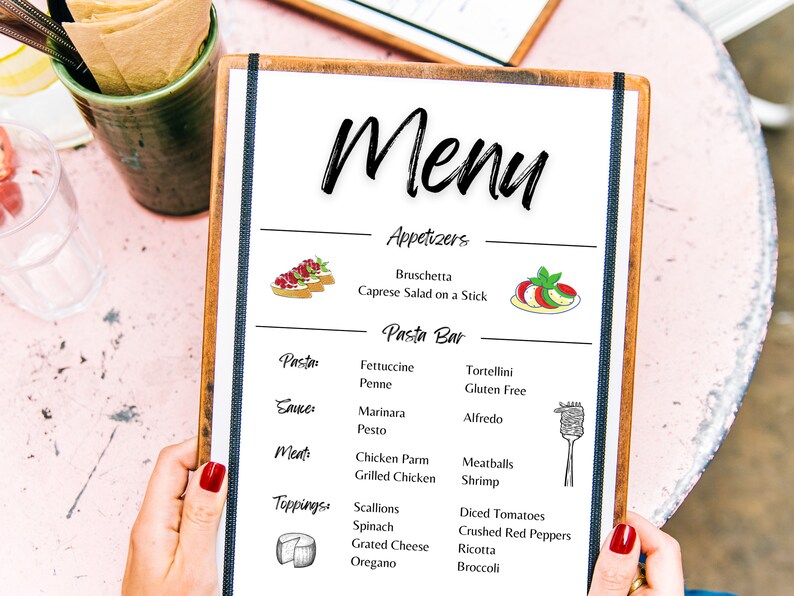 Menu
Appetizers
Bruschetta
Caprese Salad on a Stick
Pasta Bar
Pasta: Fettuccine Tortellini
Penne Gluten Free
Sauce: Marinara Alfredo
Pesto
Meat: Chicken Parm Meatballs
Grilled Chicken Shrimp
Toppings: Scallions Diced Tomatoes
Spinach Crushed Red Peppers
Grated Cheese Ricotta
Oregano Broccoli